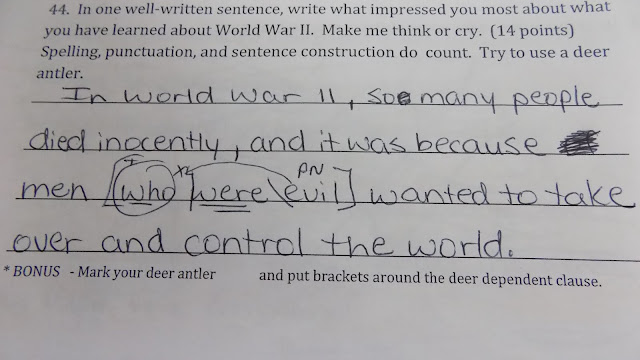 44. In one well-written sentence, write what impressed you most about what
you have learned about World War II. Make me think or cry. (14 points)
Spelling, punctuation, and sentence construction do count. Try to use a deer
antler.
In World War II, so many people
died inocently, and it was because
men [who were \evil] wanted to take
over and control the world.
* BONUS - Mark your deer antler and put brackets around the deer dependent clause.